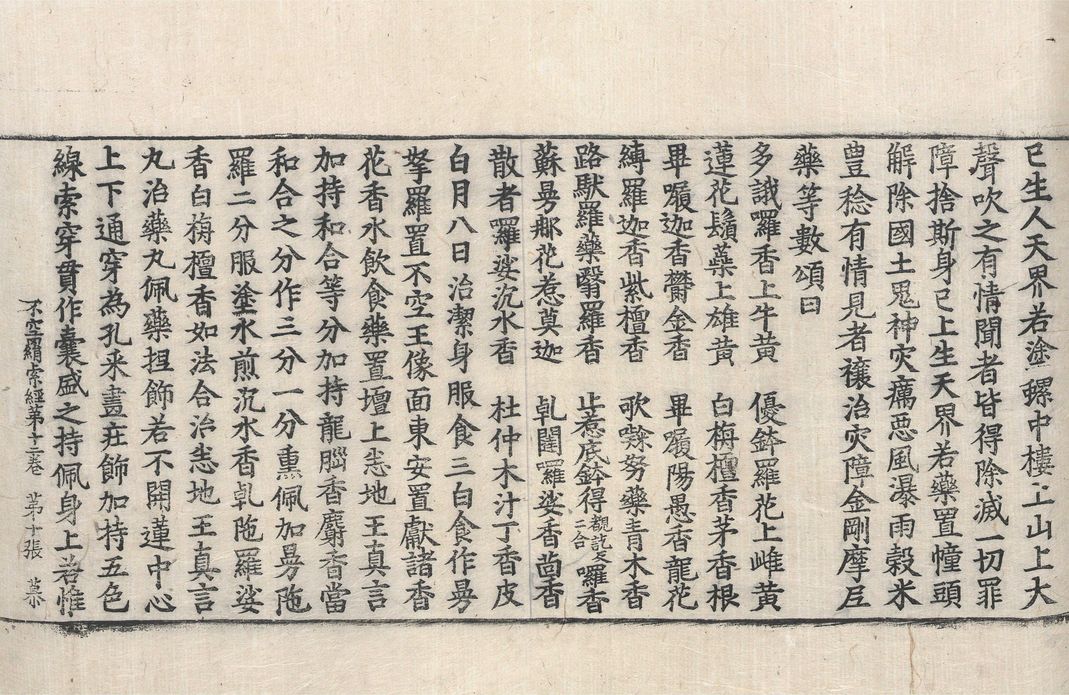 已生人天界若塗螺中樓上山上大
聲吹之有情聞者皆得除滅一切罪
障捨斯身已上生天界若藥置幢頭
解除國土鬼神灾癘惡風瀑雨穀米
豊稔有情見者禳治灾障金剛摩尼
藥等數頌曰
多誐囉香上牛黃 優鉢羅花上雌黃
蓮花鬚蘂上雄黃 白栴檀香茅香根
畢㗚迦香欝金香 畢㗚陽愚香龍花
縛羅迦香紫檀香 歌㗚努藥青木香
路馱羅藥瑿羅香 止惹底鉢得覩訖反二合囉香
蘇曼娜花惹莫迦 乹闥囉娑香茴香
散者囉娑沉水香 杜仲木汁丁香皮
白月八日治潔身服食三白食作曼
拏羅置不空王像面東安置獻諸香
花香水飲食藥置壇上悉地王真言
加持和合等分加持龍腦香麝香當
和合之分作三分一分熏佩加曼陁
羅二分服塗水煎沉水香乹陁羅娑
香白栴檀香如法合治悉地王真言
丸治藥丸佩藥捏飾若不開蓮中心
上下通穿為孔釆畫莊飾加持五色
線索穿貫作囊盛之持佩身上若惟
不空羂索經第十二卷 第十張 慕